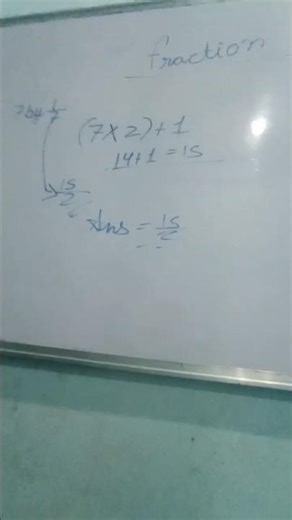 fraction
(7×2)+1
14+1=15
15/2
Ans = 15/2